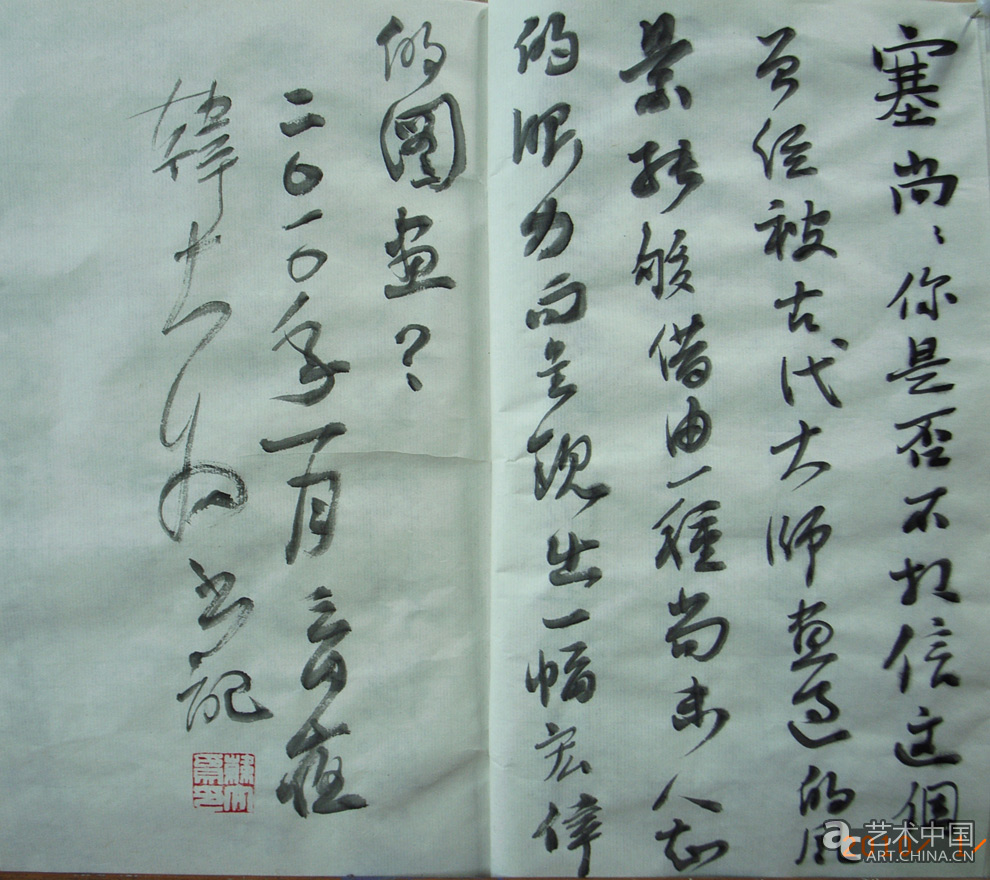 塞尚、你是否不相信这個
曾经被古代大师画过的风
景能够借由一種尚未人知
的眼力而呈现出一幅宏伟
的圖画？
二〇一〇年一月
韓大为书记
艺术中国
ART.CHINA.CN